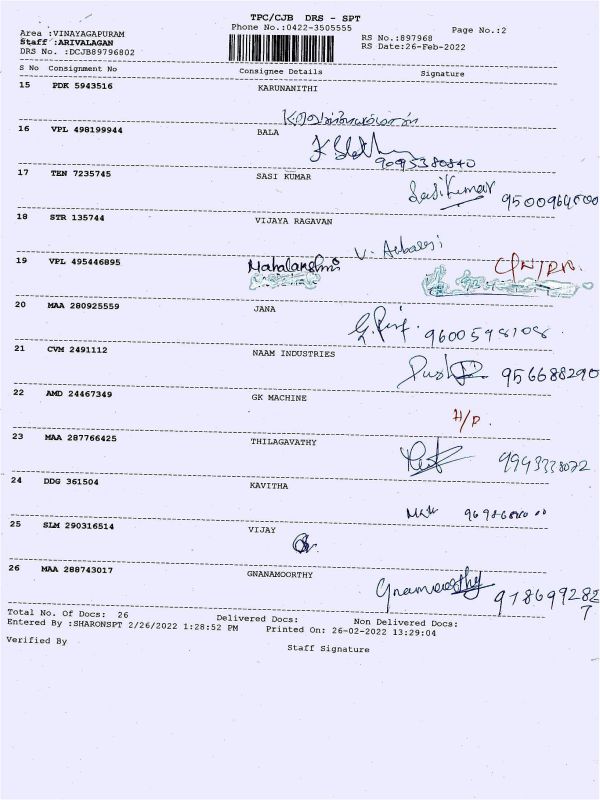 TPC/CJB DRS - SPT
Phone No.:0422-3505555
Page No.:2
Area :VINAYAGAPURAM
Staff :ARIVALAGAN
DRS No. :DCJB89796802
RS No.:897968
RS Date:26-Feb-2022
S No Consignment No Consignee Details Signature
15 PDK 5943516 KARUNANITHI
16 VPL 498199944 BALA
9095380840
17 TEN 7235745 SASI KUMAR
Sasikumar
18 STR 135744 VIJAYA RAGAVAN
19 VPL 495446895
20 MAA 280925559 JANA
9600598108
21 CVM 2491112 NAAM INDUSTRIES
956688290
22 AMD 24467349 GK MACHINE
H/P.
23 MAA 287766425 THILAGAVATHY
9943338072
24 DDG 361504 KAVITHA
25 SLM 290316514 VIJAY
26 MAA 288743017 GNANAMOORTHY
Gnamoorthy
Total No. Of Docs: 26 Delivered Docs: Non Delivered Docs:
Entered By :SHARONSPT 2/26/2022 1:28:52 PM Printed On: 26-02-2022 13:29:04
Verified By Staff Signature